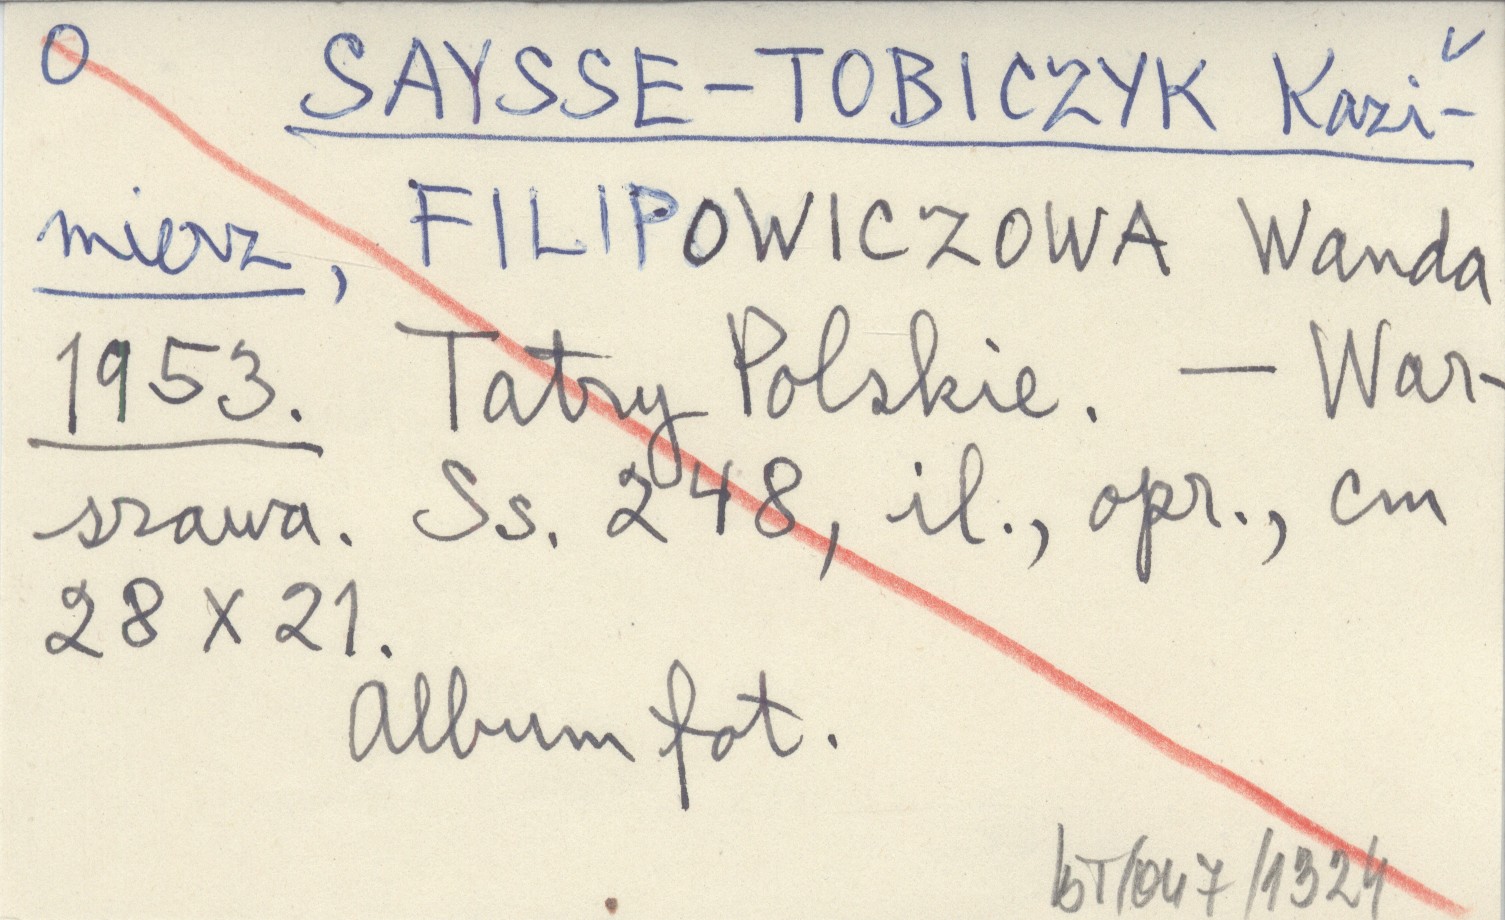 O SAYSSE-TOBICZYK Kazi-
mierz, FILIPOWICZOWA Wanda
1953. Tatry Polskie. — War-
szawa. Ss. 248, il., opr., cm
28 x 21.
Album fot.
bT/047/1324